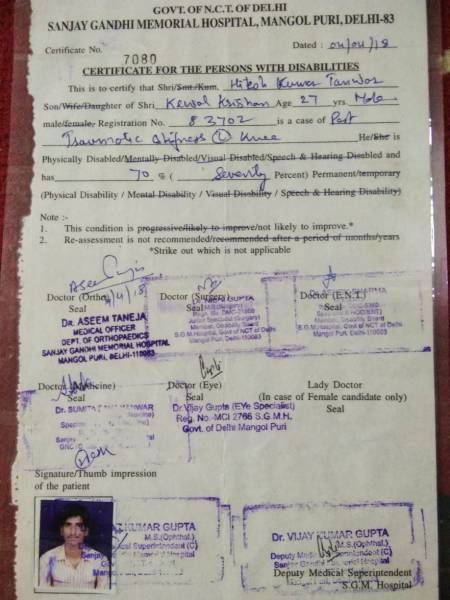 GOVT. OF N.C.T. OF DELHI
SANJAY GANDHI MEMORIAL HOSPITAL, MANGOL PURI, DELHI-83
Certificate No. 7080 Dated : 04/04/18
CERTIFICATE FOR THE PERSONS WITH DISABILITIES
This is to certify that Shri/Smt./Kum. Hitesh Kumar Tanwar
Son/Wife/Daughter of Shri Kewal Krishan Age 27 yrs. Male
male/female, Registration No. 83702 is a case of Post
Traumatic Stifness (L) Knee He/She is
Physically Disabled/Mentally Disabled/Visual Disabled/Speech & Hearing Disabled and
has 70 % ( Seventy Percent) Permanent/temporary
(Physical Disability / Mental Disability / Visual Disability / Speech & Hearing Disability)
Note :-
1. This condition is progressive/likely to improve/not likely to improve.*
2. Re-assessment is not recommended/recommended after a period of months/years
*Strike out which is not applicable
4/4/18
Doctor (Ortho) Doctor (Surgery) Doctor (E.N.T.)
Seal Seal Seal
DR. ASEEM TANEJA
MEDICAL OFFICER
DEPT. OF ORTHOPAEDICS
SANJAY GANDHI MEMORIAL HOSPITAL
MANGOL PURI, DELHI-110083
Medical Disability Board
S.G.M.Hospital, Govt of NCT of Delhi
Mangol Puri, Delhi-110083
Medical Disability Board
S.G.M.Hospital, Govt of NCT of Delhi
Mangol Puri Delhi-110083
Doctor (Medicine) Doctor (Eye) Lady Doctor
Seal Seal (In case of Female candidate only)
Seal
Dr.Vijay Gupta (EYe Specialist)
Reg. No.-MCI 2766 S.G.M.H.
Govt. of Delhi Mangol Puri
Signature/Thumb impression
of the patient
KUMAR GUPTA
M.S.(Ophthal.)
Superintendent (C)
Hospital
Dr. VIJAY KUMAR GUPTA
M.S.(Ophthal.)
Deputy Medical Superintendent (C)
Sanjay Gandhi Memorial Hospital
Mangol Puri, Delhi
Deputy Medical Superintendent
S.G.M. Hospital